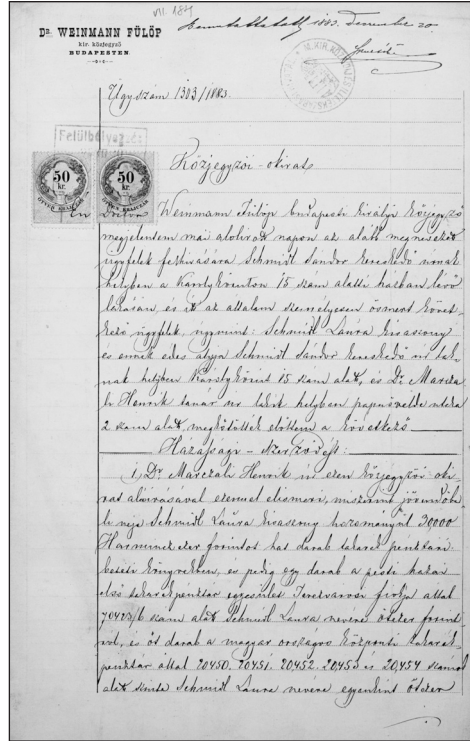 VII. 184
Bemutattatott 1883. December 20.
Dr. WEINMANN FÜLÖP
kir. közjegyző
BUDAPESTEN.
Ügyszám 1303/1883.
Felülbélyegzés
50
kr.
50
kr.
Közjegyzői-okirat
Én Doctor Weinmann Fülöp budapesti királyi közjegyző
megjelentem mai alólirott napon az alább megnevezett
ügyfelek felhívására Schmidt Sándor kereskedő urnak
helyben a Károlykörúton 15 szám alatti házban lévő
lakásán, és itt az általam személyesen ösmert követ-
kező ügyfelek, úgymint: Schmidt Laura kisasszony
és ennek édes atyja Schmidt Sándor kereskedő úr lak-
nak helyben Károlykörút 15 szám alatt, és Dr. Marcza-
li Henrik tanár úr lakik helyben papnövelde utcza
2 szám alatt, megkötötték előttem a következő
Házassági-szerződést:
1, Dr. Marczali Henrik úr ezen közjegyzői oki-
rat aláirásával ezennel elismeri, miszerint jövendőbe-
li neje Schmidt Laura kisasszony hozományul 30000
Harminczezer forintot hat darab takarék pénztári
betéti könyvekben, és pedig egy darab a pesti hazai
első takarékpénztár egyesület Terézvárosi fiókja által
szám alatt Schmidt Laura nevére ötezer forint-
ról, és öt darab a magyar országos központi takarék-
pénztár által 20450. 20451. 20452. 20453 és 20,454 számok
alatt szinte Schmidt Laura nevére egyenkint ötezer